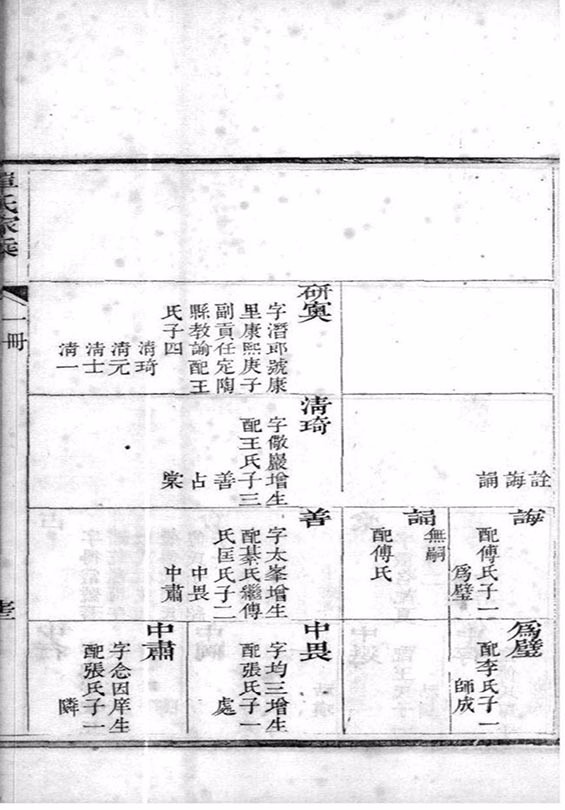 詮
誨
誦
誨
配傅氏子一
為璧
誦
無嗣
配傅氏
為璧
配李氏子一
師成
研寞
字潛耶號康
里康熙庚子
副貢任定陶
縣教諭配王
氏子四
清琦
清元
清士
清一
清琦
字儆巖增生
配王氏子三
善
占
棠
善
字太峯增生
配綦氏繼傅
氏匡氏子二
中畏
中肅
中畏
字均三增生
配張氏子一
處
中肅
字念因庠生
配張氏子一
隣
氏家乘
一冊